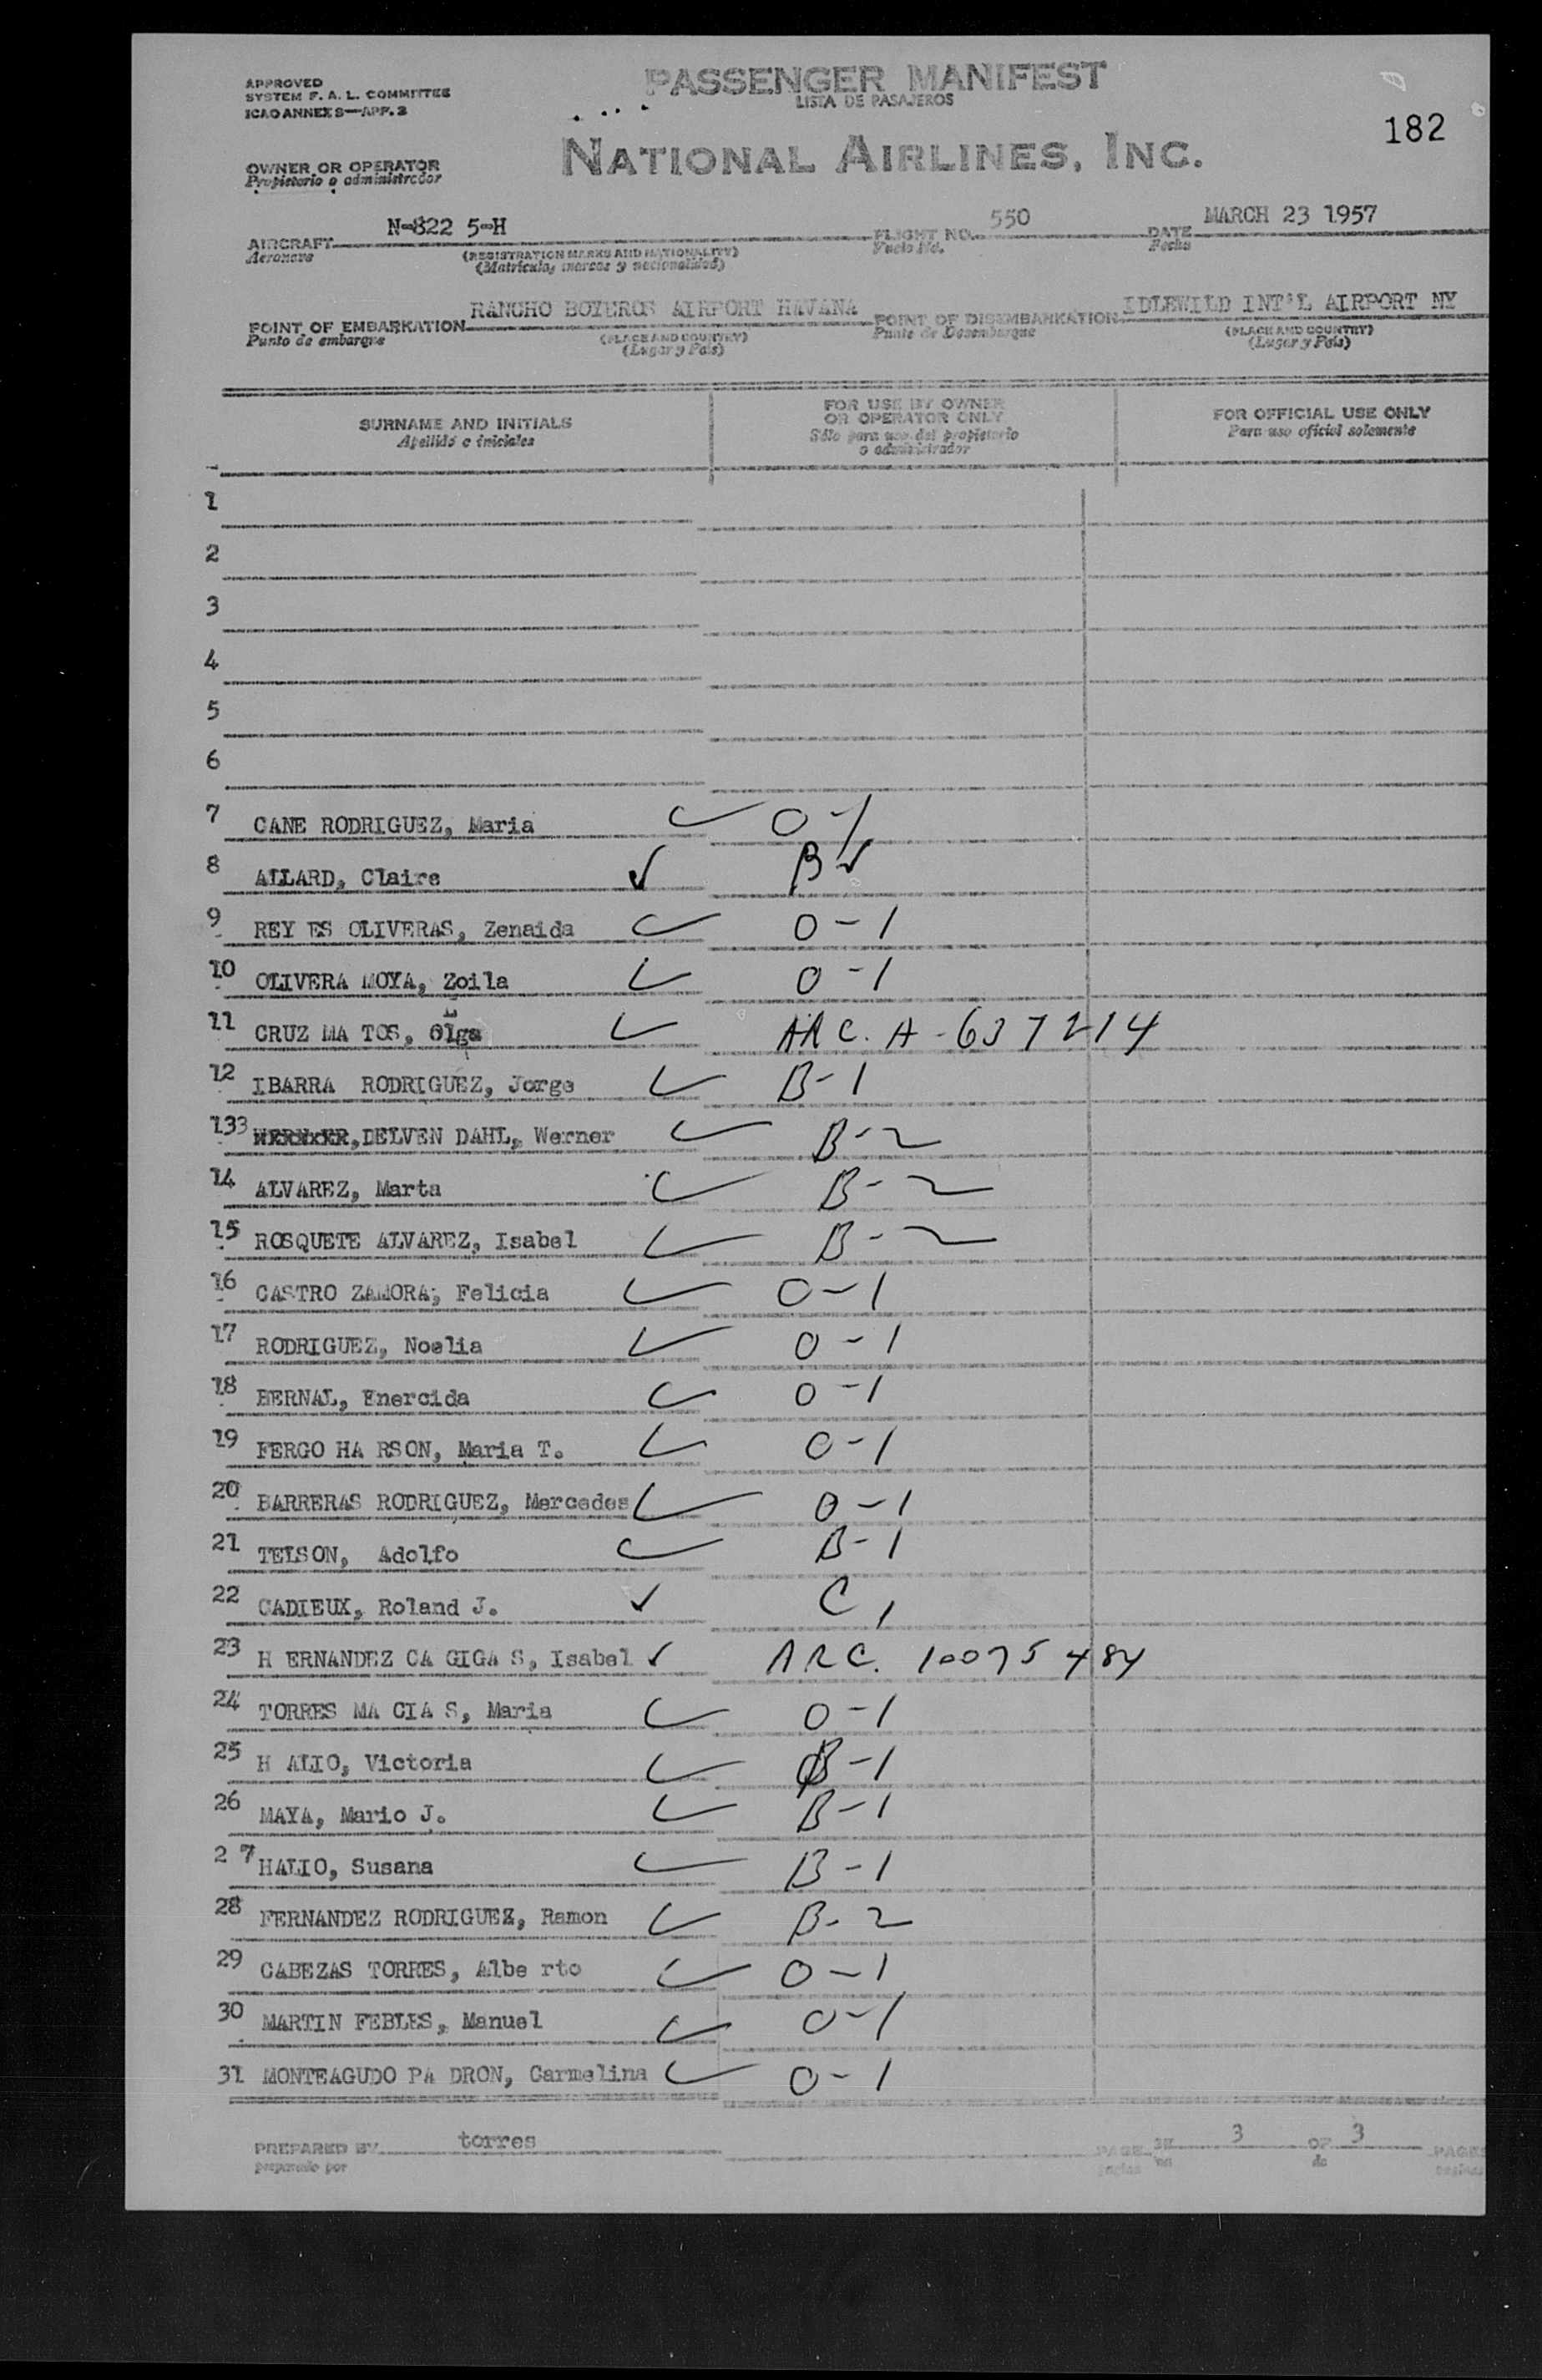 APPROVED
SYSTEM F. A. L. COMMITTEE
ICAO ANNEX 8—APP. 2
PASSENGER MANIFEST
LISTA DE PASAJEROS
182
NATIONAL AIRLINES, INC.
OWNER OR OPERATOR
Propietario o administrador
AIRCRAFT N-822 5-H FLIGHT NO. 550 DATE MARCH 23 1957
Aeronave (REGISTRATION MARKS AND NATIONALITY) Vuelo No. Fecha
(Matricula, marcas y nacionalidad)
POINT OF EMBARKATION RANCHO BOYEROS AIRPORT HAVANA POINT OF DISEMBARKATION IDLEWILD INT'L AIRPORT NY
Punto de embarque (PLACE AND COUNTRY) Punto de Desembarque (PLACE AND COUNTRY)
(Lugar y Pais) (Lugar y Pais)
SURNAME AND INITIALS FOR USE BY OWNER OR OPERATOR ONLY FOR OFFICIAL USE ONLY
Apellido e iniciales Sólo para uso del propietario o administrador Para uso oficial solamente
1
2
3
4
5
6
7 CANE RODRIGUEZ, Maria O-1
8 ALLARD, Claire B
9 REY ES OLIVERAS, Zenaida O-1
10 OLIVERA MOYA, Zoila O-1
11 CRUZ MA TOS, Olga ARC. A-637214
12 IBARRA RODRIGUEZ, Jorge B-1
133 DELVEN DAHL, Werner B-2
14 ALVAREZ, Marta B-2
15 ROSQUETE ALVAREZ, Isabel B-2
16 CASTRO ZAMORA, Felicia O-1
17 RODRIGUEZ, Noelia O-1
18 BERNAL, Enercida O-1
19 FERGO HA RSON, Maria T. O-1
20 BARRERAS RODRIGUEZ, Mercedes O-1
21 TELSON, Adolfo B-1
22 CADIEUX, Roland J. C,
23 H ERNANDEZ CA GIGA S, Isabel ARC. 10075484
24 TORRES MA CIA S, Maria O-1
25 H ALIO, Victoria B-1
26 MAYA, Mario J. B-1
2 7 HALIO, Susana B-1
28 FERNANDEZ RODRIGUEZ, Ramon B-2
29 CABEZAS TORRES, Albe rto O-1
30 MARTIN FEBLES, Manuel O-1
31 MONTEAGUDO PA DRON, Carmelina O-1
PREPARED BY torres PAGE 3 OF 3 PAGES
preparado por de